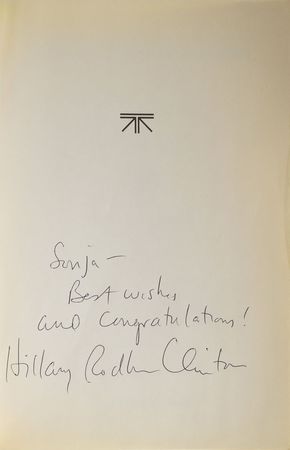 Sonja—
Best wishes
and congratulations!
Hillary Rodham Clinton